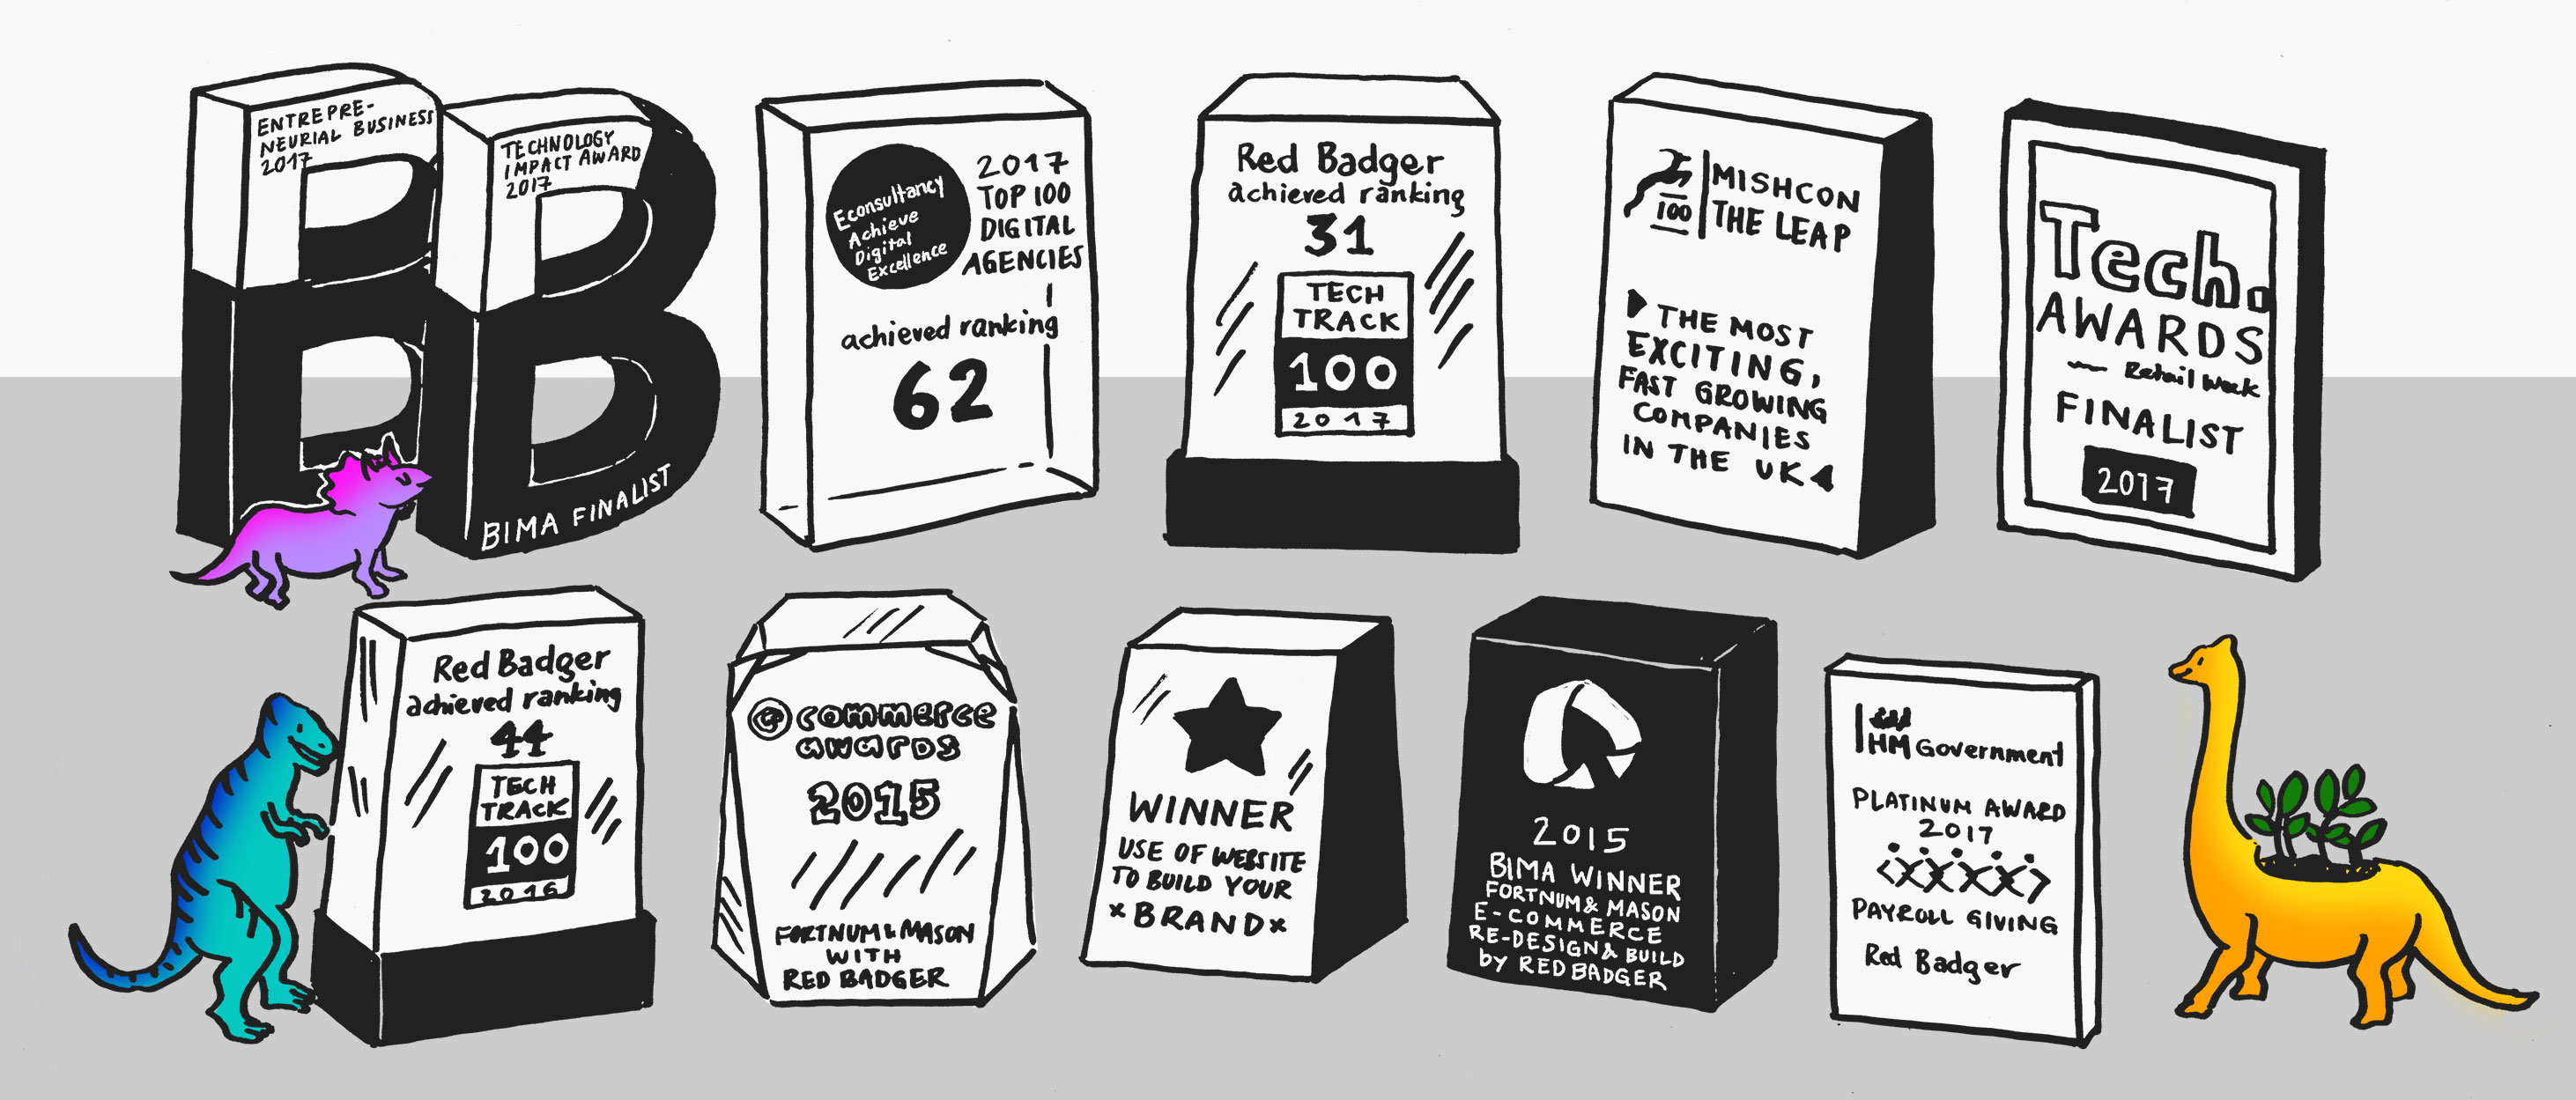 ENTREPRE-
NEURIAL BUSINESS
2017
TECHNOLOGY
IMPACT AWARD
2017
BIMA FINALIST
Econsultancy
Achieve
Digital
Excellence
2017
TOP 100
DIGITAL
AGENCIES
achieved ranking
62
Red Badger
achieved ranking
31
TECH
TRACK
100
2017
100
MISHCON
THE LEAP
THE MOST
EXCITING,
FAST GROWING
COMPANIES
IN THE UK
Tech.
AWARDS
Retail Week
FINALIST
2017
Red Badger
achieved ranking
44
TECH
TRACK
100
2016
@commerce
awards
2015
FORTNUM & MASON
WITH
RED BADGER
WINNER
USE OF WEBSITE
TO BUILD YOUR
×BRAND×
2015
BIMA WINNER
FORTNUM & MASON
E-COMMERCE
RE-DESIGN & BUILD
by RED BADGER
HM Government
PLATINUM AWARD
2017
PAYROLL GIVING
Red Badger